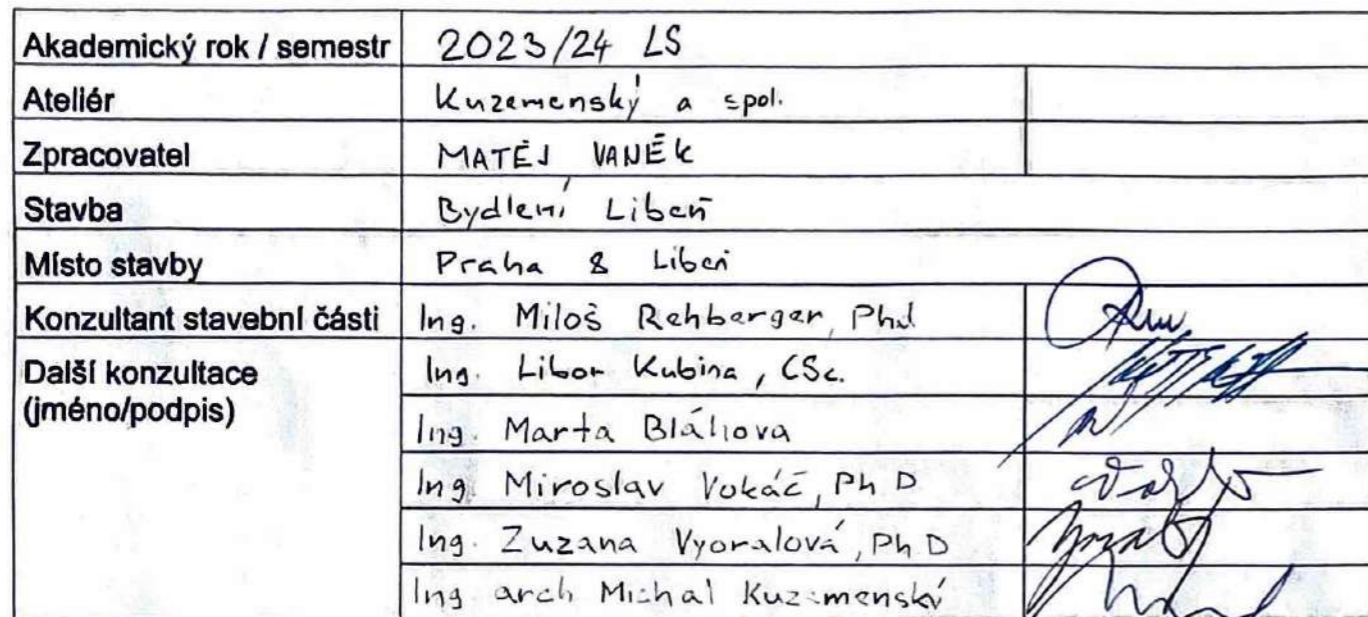 Akademický rok / semestr 2023/24 LS
Ateliér Kuzemenský a spol.
Zpracovatel MATĚJ VANĚK
Stavba Bydlení Libeň
Místo stavby Praha 8 Libeň
Konzultant stavební části Ing. Miloš Rehberger, PhD
Další konzultace Ing. Libor Kubina, CSc.
(jméno/podpis)
Ing. Marta Bláhova
Ing. Miroslav Vokáč, PhD
Ing. Zuzana Vyoralová, PhD
Ing arch Michal Kuzemenský